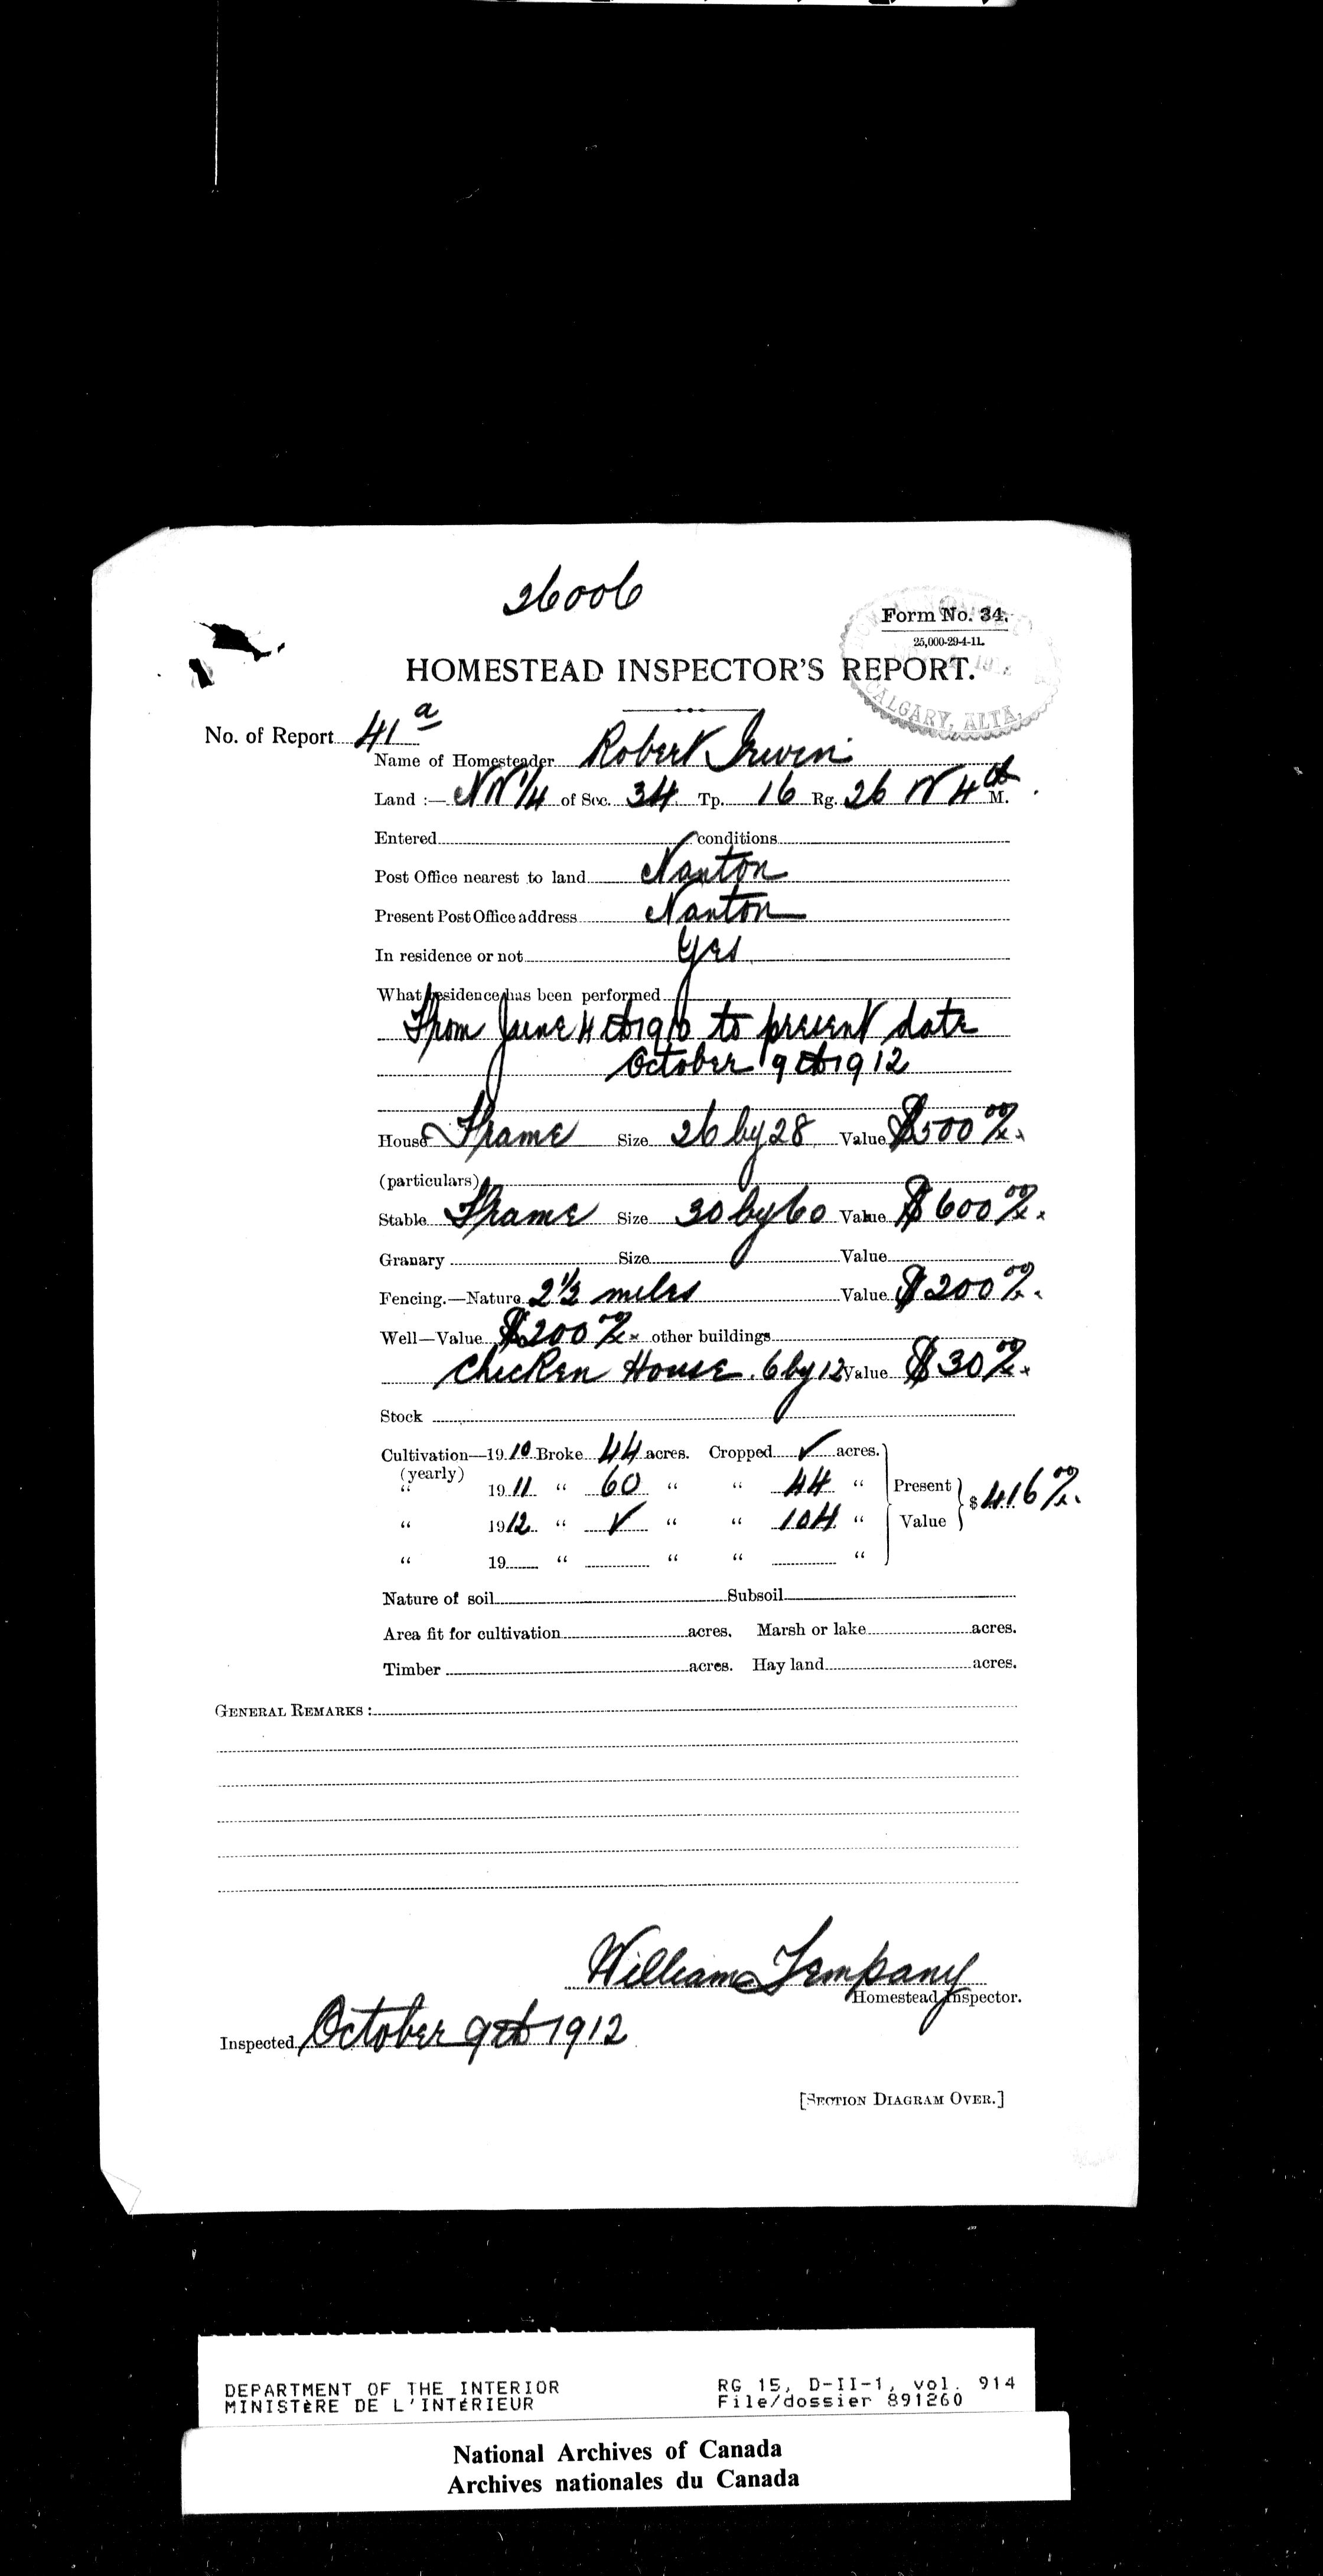 26006
Form No. 34.
25,000-29-4-11.
HOMESTEAD INSPECTOR'S REPORT.
CALGARY, ALTA.
No. of Report 41 a
Name of Homesteader Robert Irwin
Land :— NW 1/4 of Sec. 34 Tp. 16 Rg. 26 W 4th M.
Entered conditions
Post Office nearest to land Nanton
Present Post Office address Nanton
In residence or not Yes
What residence has been performed
From June 4th 1910 to present date
October 9th 1912
House Frame Size 26 by 28 Value $500 00/xx
(particulars)
Stable Frame Size 30 by 60 Value $600 00/xx
Granary Size Value
Fencing.—Nature 2 1/2 miles Value $200 00/xx
Well—Value $200 00/xx other buildings
Chicken House 6 by 12 Value $30 00/xx
Stock
Cultivation—1910 Broke 44 acres. Cropped ✓ acres.
(yearly)
" 1911 " 60 " " 44 " Present
" 1912 " ✓ " " 104 " Value $416 00/xx
" 19 " " " "
Nature of soil Subsoil
Area fit for cultivation acres. Marsh or lake acres.
Timber acres. Hay land acres.
GENERAL REMARKS :
William Tempany
Homestead Inspector.
Inspected October 9th 1912
[SECTION DIAGRAM OVER.]
DEPARTMENT OF THE INTERIOR RG 15, D-II-1, vol. 914
MINISTÈRE DE L'INTÉRIEUR File/dossier 891260
National Archives of Canada
Archives nationales du Canada